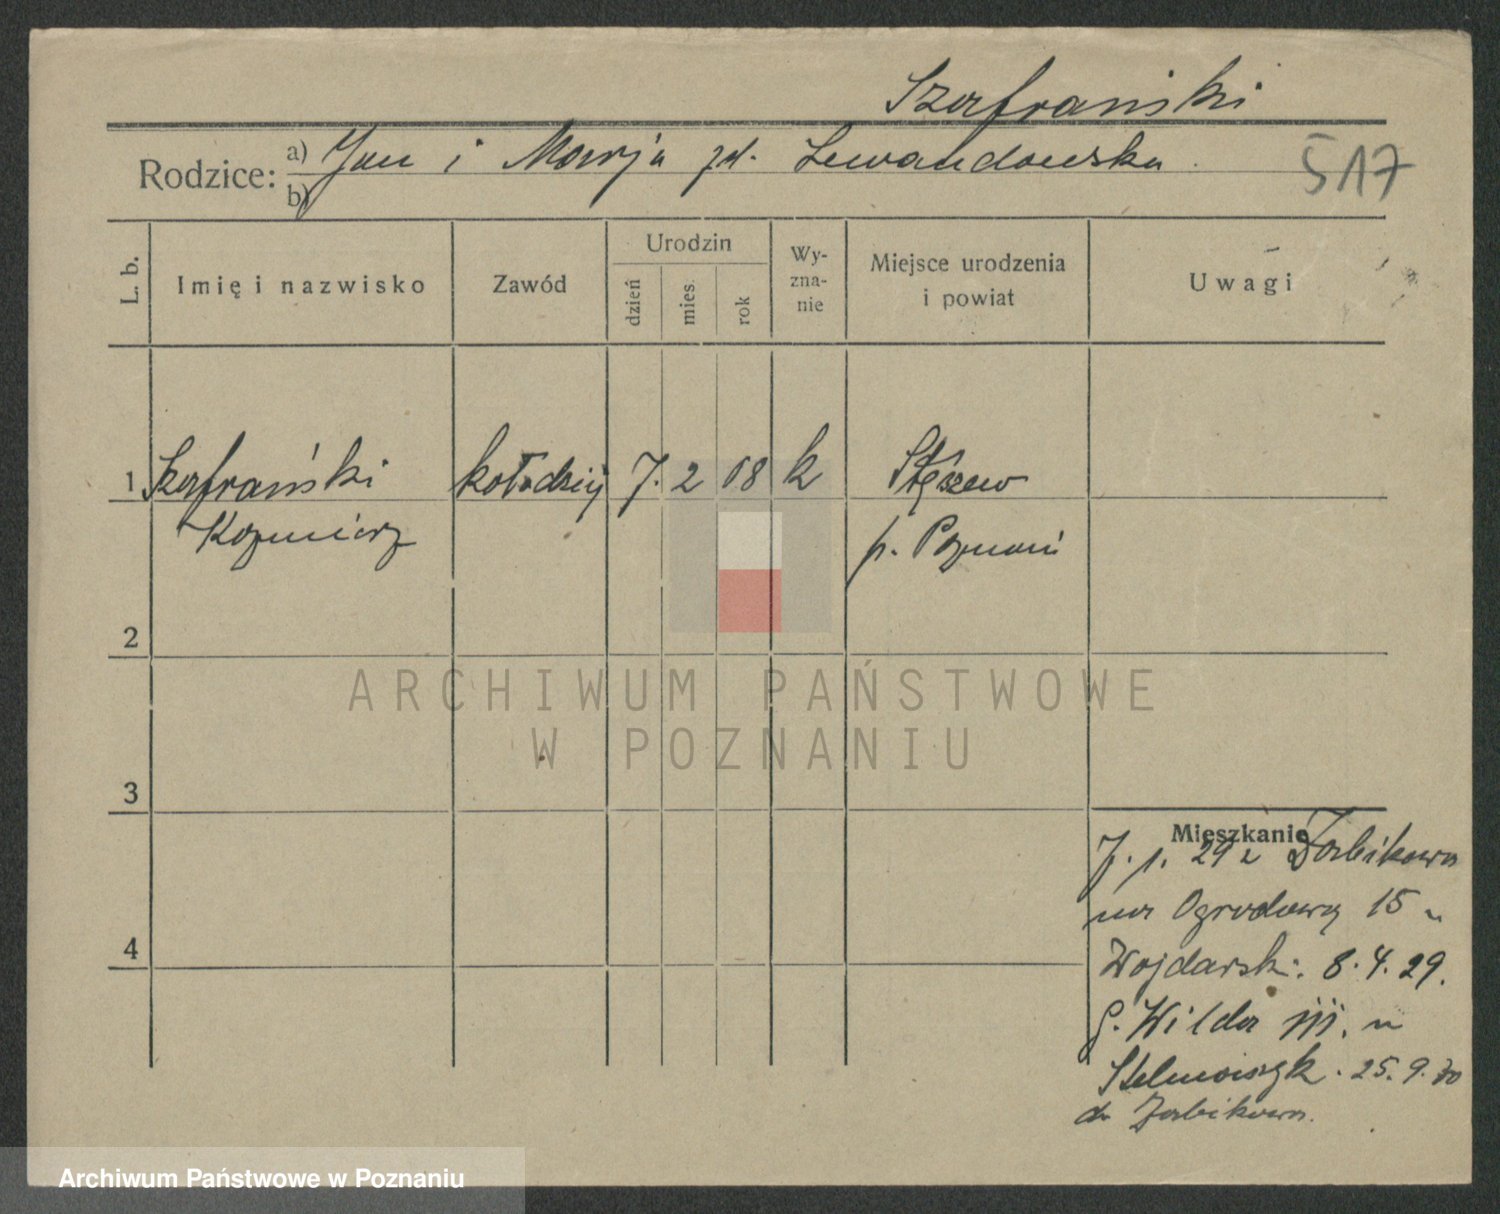 Szafrański
Rodzice: a) Jan i Marja zd. Lewandowska.
b)
517
L. b.
Imię i nazwisko
Zawód
Urodzin
dzień
mies.
rok
Wy-
zna-
nie
Miejsce urodzenia
i powiat
Uwagi
1 Szafrański kołodziej 7. 2 08 k Stęszew
Kazmierz p. Poznań
2
ARCHIWUM PAŃSTWOWE
W POZNANIU
3
Mieszkanie
29 z Żabikowa
na Ogrodową 15 u
Wojdarsk. 8.4.29.
G. Wilda III. u
Stelmaszyk. 25.9.30
do Żabikowa.
4
Archiwum Państwowe w Poznaniu